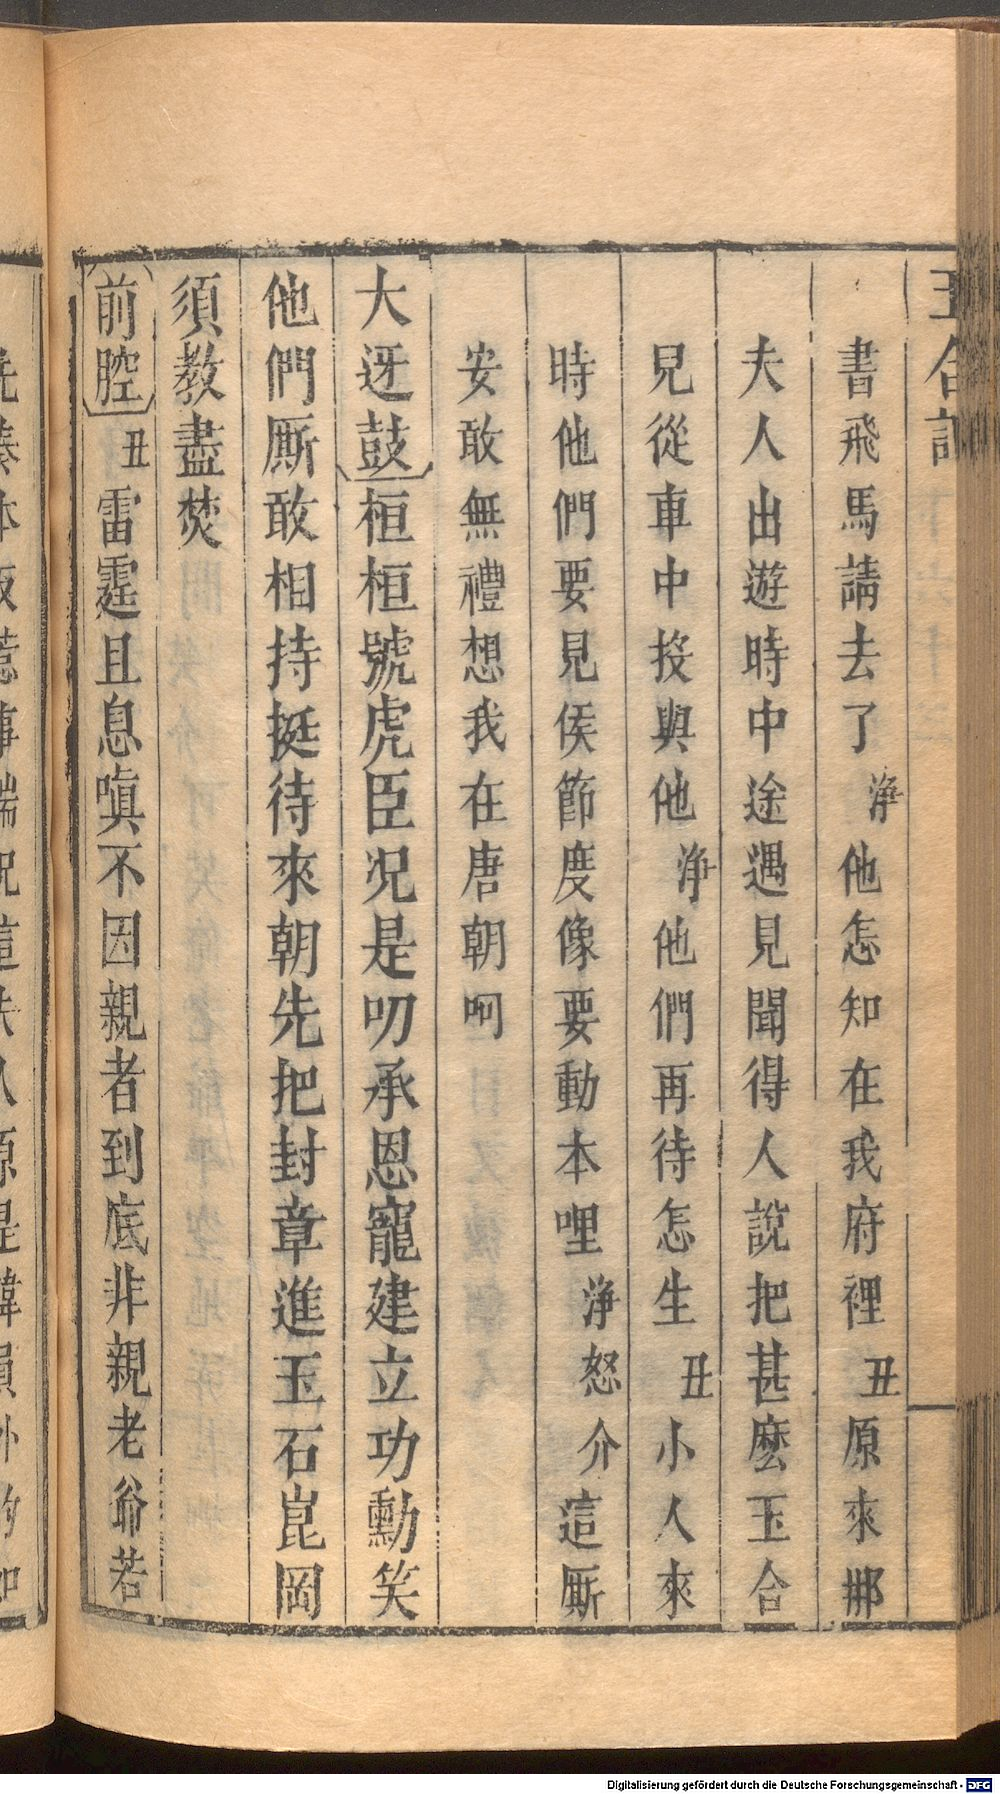 玉合記
書飛馬請去了淨他怎知在我府裡丑原來那
夫人出遊時中途遇見聞得人說把甚麽玉合
兒從車中投與他淨他們再待怎生丑小人來
時他們要見侯節度像要動本哩淨怒介這厮
安敢無禮想我在唐朝呵
大迓鼓桓桓號虎臣况是叨承恩寵建立功勳笑
他們厮敢相持挺待來朝先把封章進玉石崑岡
須教盡焚
前腔丑雷霆且息嗔不因親者到底非親老爺若
Digitalisierung gefördert durch die Deutsche Forschungsgemeinschaft - DFG